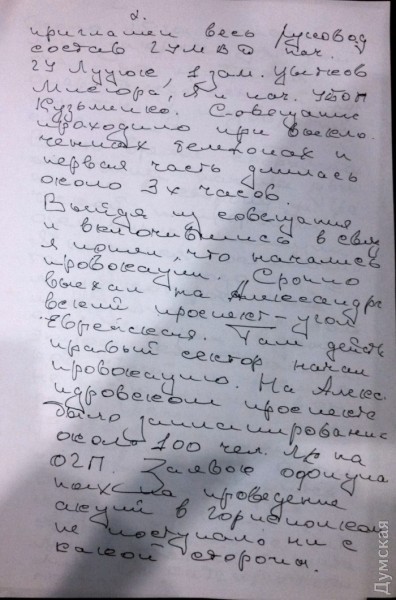 2.
приглашен весь руковод
состав ГУМВД нач.
ГУ Луцюк, 1 зам. Цвитков
Мисюра, Я и нач. УБОП
Кузьменко. Совещание
проходило при выклю-
ченных телефонах и
первая часть длилась
около 3х часов.
Выйдя из совещания
и включившись в связь
я понял, что начались
провокации. Срочно
выехал на Александро
вский проспект – угол
Еврейская. Там действ
правый сектор начал
провокацию. На Алекс
ндровском проспекте
было
около 100 чел. на
ОГП. Заявою официа
на проведение
акций в горисполком
не поступало ни с
какой стороны.
Думская